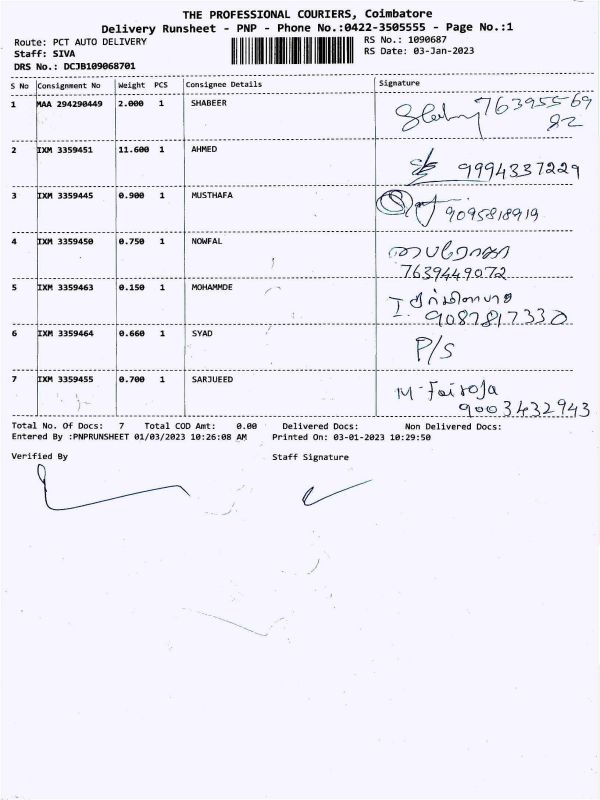 THE PROFESSIONAL COURIERS, Coimbatore
Delivery Runsheet - PNP - Phone No.:0422-3505555 - Page No.:1
Route: PCT AUTO DELIVERY
RS No.: 1090687
Staff: SIVA
RS Date: 03-Jan-2023
DRS No.: DCJB109068701
S No Consignment No Weight PCS Consignee Details Signature
1 MAA 294290449 2.000 1 SHABEER 76395569
82
2 IXM 3359451 11.600 1 AHMED
9994337229
3 IXM 3359445 0.900 1 MUSTHAFA
9095818919
4 IXM 3359450 0.750 1 NOWFAL
7639449072
5 IXM 3359463 0.150 1 MOHAMMDE
9087817330
6 IXM 3359464 0.660 1 SYAD P/S
7 IXM 3359455 0.700 1 SARJUEED M. Fairoja
9003432943
Total No. Of Docs: 7 Total COD Amt: 0.00 Delivered Docs: Non Delivered Docs:
Entered By :PNPRUNSHEET 01/03/2023 10:26:08 AM Printed On: 03-01-2023 10:29:50
Verified By Staff Signature